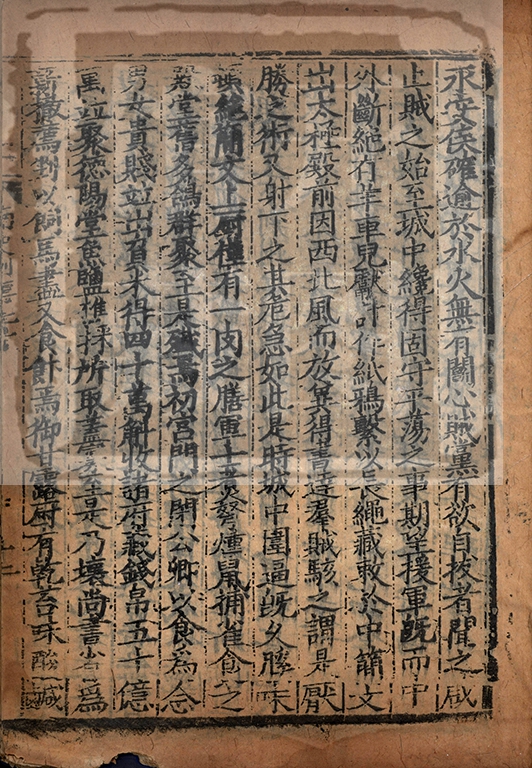 永安侯確逾於水火無有鬬心賊黨有欲自拔者聞之咸
止賊之始至城中纔得固守平蕩之事期望援軍既而中
外斷絕有羊車兒獻計作紙鴉繫以長繩藏敕於中簡文
出太極殿前因西北風而放冀得書達羣賊駭之謂是厭
勝之術又射下之其危急如此是時城中圍逼既久膳味
絕簡文上厨僅有一肉之膳軍士煮弩燻鼠捕雀食之
殿堂舊多鴿群聚至是殲焉初宮門之閉公卿以食為念
男女貴賤並出負米得四十萬斛收諸府藏錢帛五十億
萬並聚德陽堂魚鹽樵採所取蓋寡至是乃壞尚書省為
薪撤薦剉以飼馬盡又食飰焉御甘露厨有乾苔味酸鹹